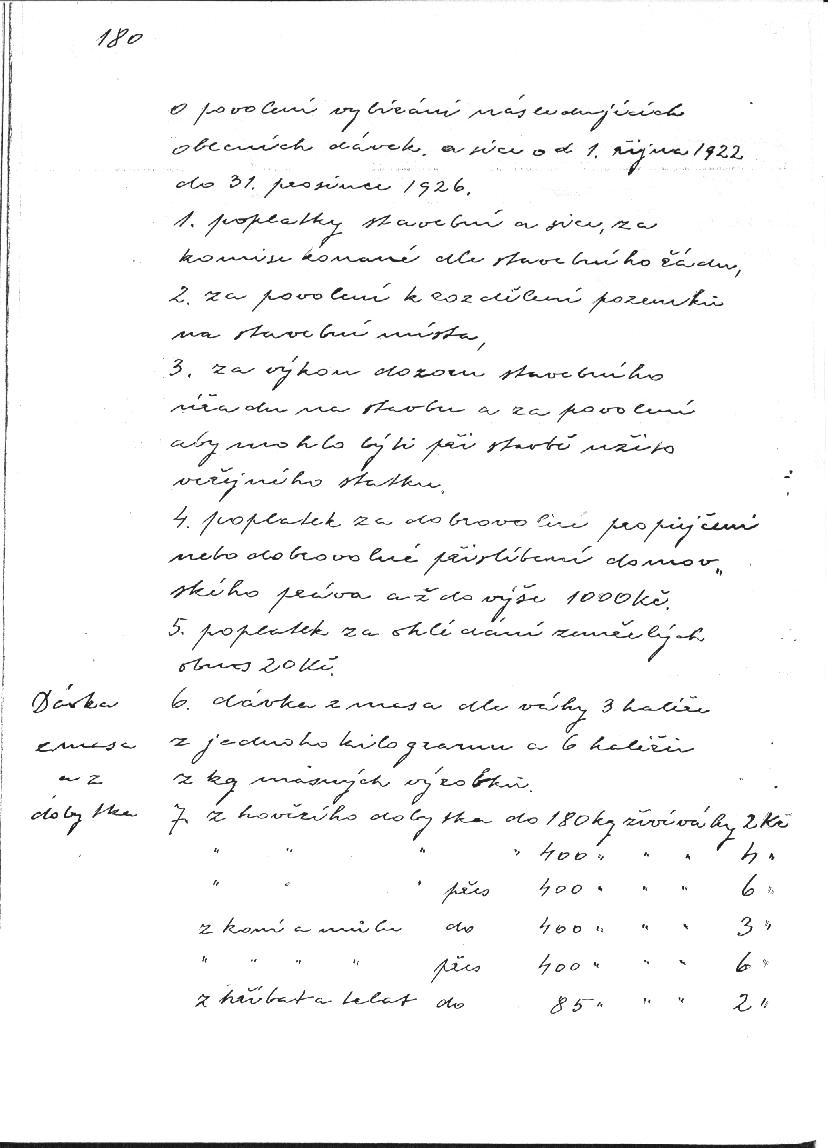 180
o povolení vybírání následujících
obecních dávek. a sice od 1. října 1922
do 31. prosince 1926.
1. poplatky stavební a sice, za
komise konané dle stavebního řádu,
2. za povolení k rozdělení pozemků
na stavební místa,
3. za výkon dozoru stavebního
úřadu na stavbu a za povolení
aby mohlo býti při stavbě užito
veřejného statku.
4. poplatek za dobrovolné propůjčení
nebo dobrovolné přislíbení domov„
ského práva až do výše 1000 Kč.
5. poplatek za ohledání zemřelých
obnos 20 Kč.
Dávka
z masa
a z
dobytka
6. dávka z masa dle váhy 3 haléře
z jednoho kilogramu a 6 haléřů
z kg masných výrobků.
7. z hovězího dobytka do 180 kg živé váhy 2 Kč
" " " " 400 " " " 4 "
" " " přes 400 " " " 6 "
z koní a mulů do 400 " " " 3 "
" " " " přes 400 " " " 6 "
z hříbat a telat do 85 " " " 2 "